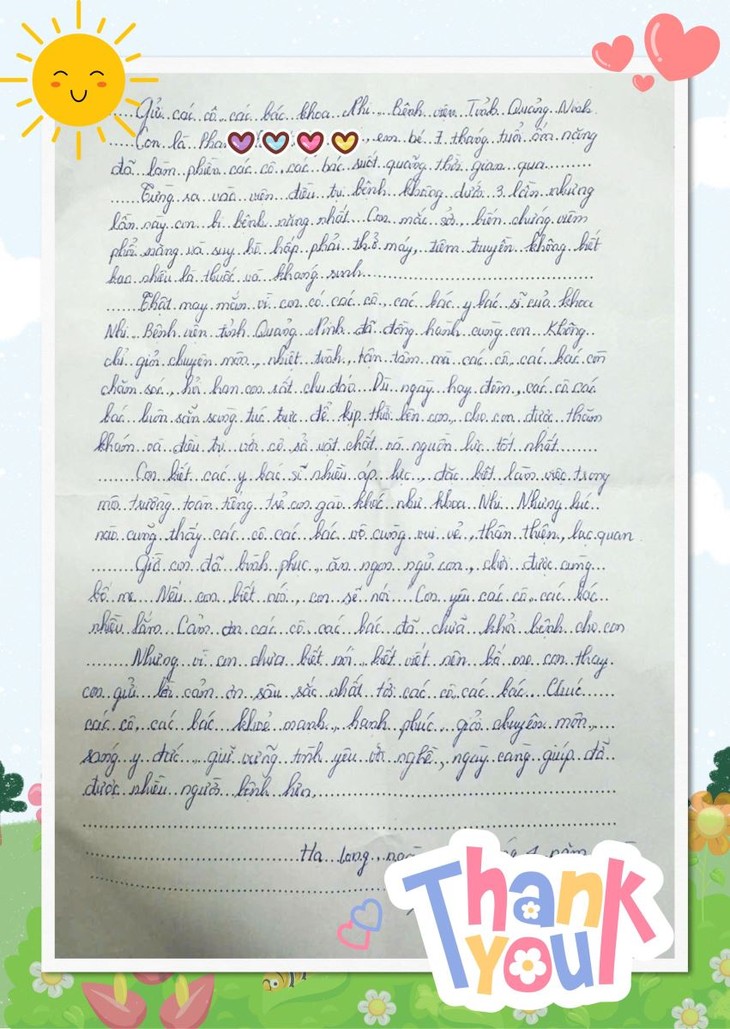 Gửi các cô, các bác khoa Nhi, Bệnh viện Tỉnh Quảng Ninh
Con là Pha, em bé 7 tháng tuổi ốm nặng
đã làm phiền các cô, các bác suốt quãng thời gian qua
Từng ra vào viện điều trị bệnh không dưới 3 lần nhưng
lần này con bị bệnh nặng nhất. Con mắc sởi, biến chứng viêm
phổi nặng và suy hô hấp phải thở máy, tiêm truyền không biết
bao nhiêu là thuốc và kháng sinh
Thật may mắn vì con có các cô, các bác y bác sĩ của khoa
Nhi, Bệnh viện tỉnh Quảng Ninh đã đồng hành cùng con. Không
chỉ giỏi chuyên môn, nhiệt tình, tận tâm mà các cô, các bác còn
chăm sóc, hỏi han con rất chu đáo. Dù ngày hay đêm, các cô các
bác luôn sẵn sàng túc trực để kịp thời bên con, cho con được thăm
khám và điều trị với cơ sở vật chất và nguồn lực tốt nhất
Con biết các y bác sĩ nhiều áp lực, đặc biệt làm việc trong
môi trường toàn tiếng trẻ con gào khóc như khoa Nhi. Nhưng lúc
nào cũng thấy các cô các bác vô cùng vui vẻ, thân thiện, lạc quan
Giờ con đã bình phục, ăn ngon ngủ ngoan, chơi được cùng
bố mẹ. Nếu con biết nói, con sẽ nói "Con yêu các cô, các bác
nhiều lắm. Cảm ơn các cô các bác đã chữa khỏi bệnh cho con
Nhưng vì con chưa biết nói, biết viết nên bố mẹ con thay
con gửi lời cảm ơn sâu sắc nhất tới các cô các bác. Chúc
các cô, các bác khoẻ mạnh, hạnh phúc, giỏi chuyên môn,
sáng y đức, giữ vững tình yêu với nghề, ngày càng giúp đỡ
được nhiều người bệnh hơn.
Hạ Long, năm
Thank
you